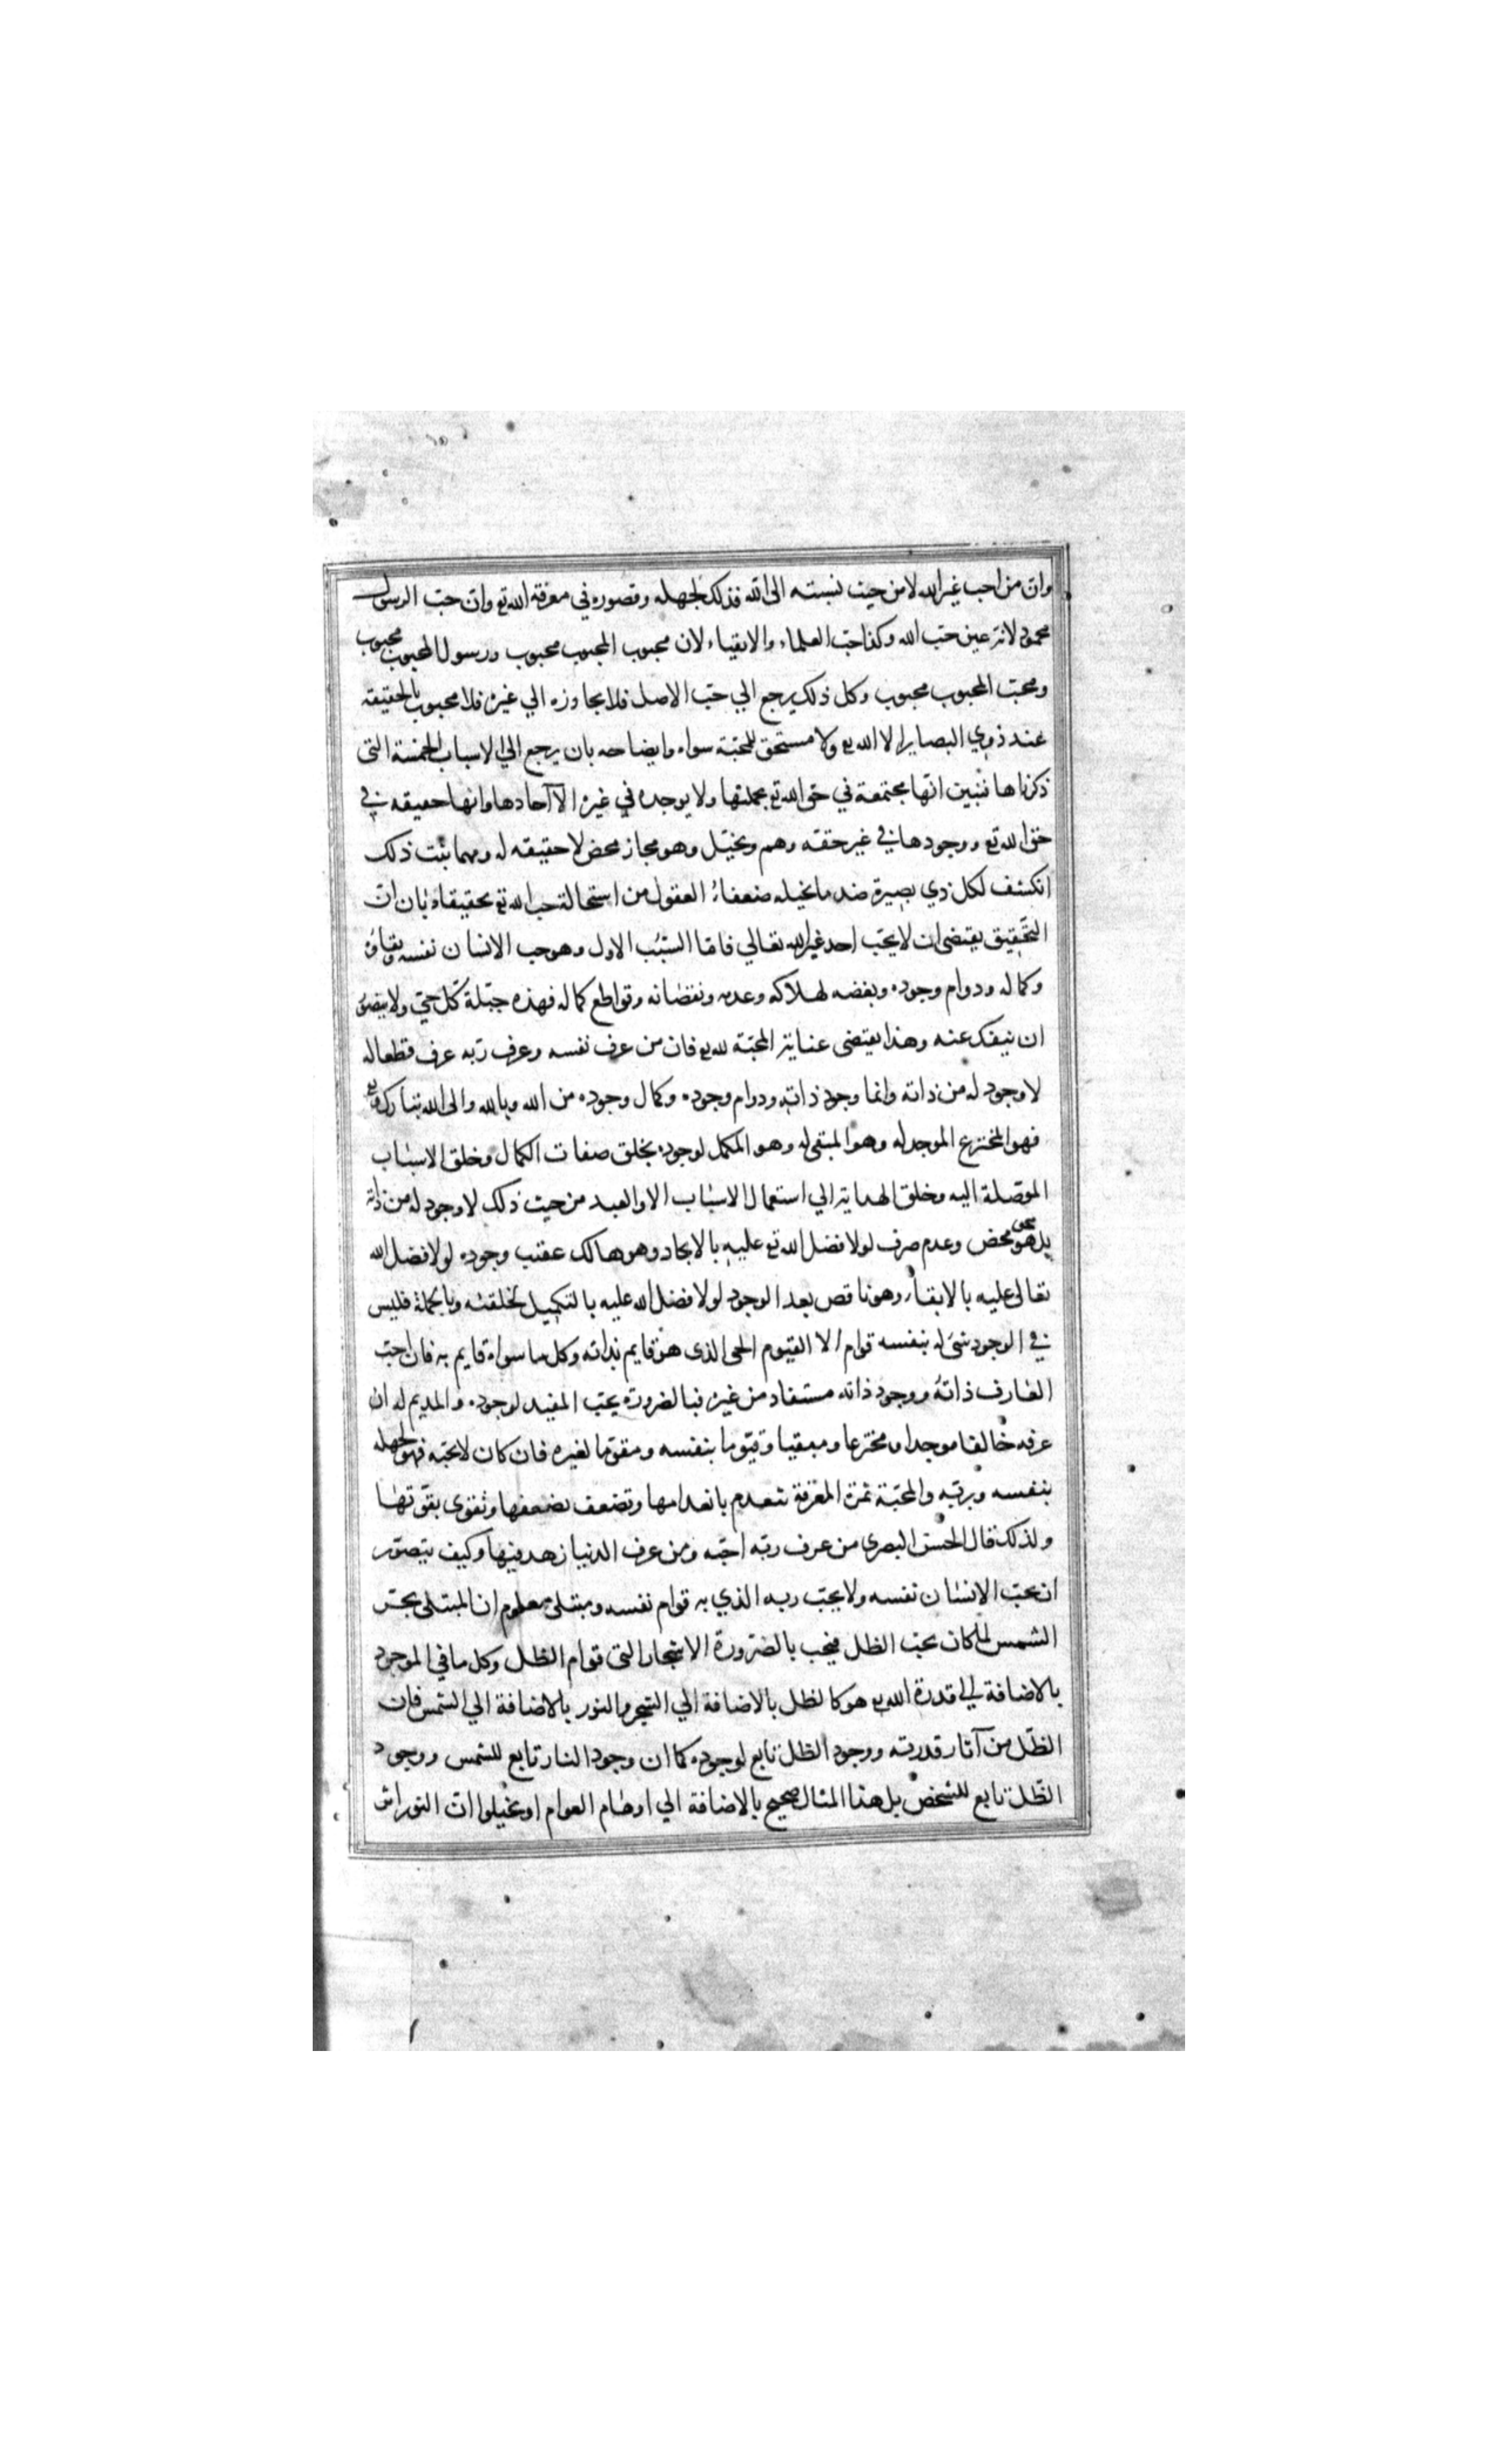 وان من احب غير الله لا من حيث نسبته الى الله فذلك لجهله وقصوره في معرفة الله تع وان حب الرسول
محمود لانه عين حب الله وكذا حب العلماء والاتقياء لان محبوب المحبوب محبوب ورسول المحبوب محبوب
ومحب المحبوب محبوب وكل ذلك يرجع الي حب الاصل فلا يجاوزه الي غيره فلا محبوب بالحقيقه
عند ذوي البصاير الا الله تع ولا مستحق للمحبة سواه وايضاحه بان يرجع الي الاسباب الخمسة التى
ذكرناها نبين انها مجتمعة في حق الله تع بجملتها ولا يوجد في غيره الا آحادها وانها حقيقه في
حق الله تع ووجودها في غير حقه وهم وتخيل وهو مجاز محض لا حقيقه له ومهما ثبت ذلك
انكشف لكل ذي بصيرة ضد ما تخيله ضعفاء العقول من استحالة حب الله تع تحقيقا وبان ان
التحقيق يقتضى ان لا يحب احد غير الله تعالي فاما السبب الاول وهو حب الانسان نفسه وبقاؤه
وكماله ودوام وجوده وبغضه لهلاكه وعدمه ونقصانه وقواطع كماله فهذه جبلة كل حي ولا يتصور
ان ينفك عنه وهذا يقتضى غناية المحبة لله تع فان من عرف نفسه وعرف ربه عرف قطعا له
لا وجود له من ذاته وانما وجود ذاته ودوام وجوده وكمال وجوده من الله وبالله والى الله تبارك وتع
فهو المخترع الموجد له وهو المبقى له وهو المكمل لوجوده بخلق صفات الكمال وخلق الاسباب
الموصلة اليه وخلق الهداية الي استعمال الاسباب الا والعبد من حيث ذلك لا وجود له من ذاته
بل هو محو محض وعدم صرف لولا فضل الله تع عليه بالايجاد وهو هالك عقيب وجوده لولا فضل الله
تعالى عليه بالابقاء وهو ناقص بعد الوجود لولا فضل الله عليه بالتكميل لخلقته وبالجملة فليس
في الوجود شئ له بنفسه قوام الا القيوم الحى الذى هو قايم بذاته وكل ما سواه قايم به فان احب
العارف ذاته ووجود ذاته مستفاد من غيره فبالضرورة يحب المفيد لوجوده والمديم له ان
عرفه خالقا موجدا ومخترعا ومبقيا وقيوما بنفسه ومقوما لغيره فان كان لا يحبه فهو لجهله
بنفسه وبربه والمحبة ثمرة المعرفة تنعدم بانعدامها وتضعف بضعفها وتقوى بقوتها
ولذلك قال الحسن البصرى من عرف ربه احبه ومن عرف الدنيا زهد فيها وكيف يتصور
ان يحب الانسان نفسه ولا يحب ربه الذي به قوام نفسه ومبتلى معلوم ان المبتلى بحر
الشمس لما كان يحب الظل فيحب بالضرورة الاشجار التى قوام الظل وكل ما في الموجود
بالاضافة الي قدرة الله تع هو كالظل بالاضافة الي الشجر والنور بالاضافة الي الشمس فان
الظل من آثار قدرته ووجود الظل تابع لوجوده كما ان وجود النار تابع للشمس ووجود
الظل تابع للشخص بل هذا المثال صحيح بالاضافة الي اوهام العوام او تخيلوا ان النور اثر